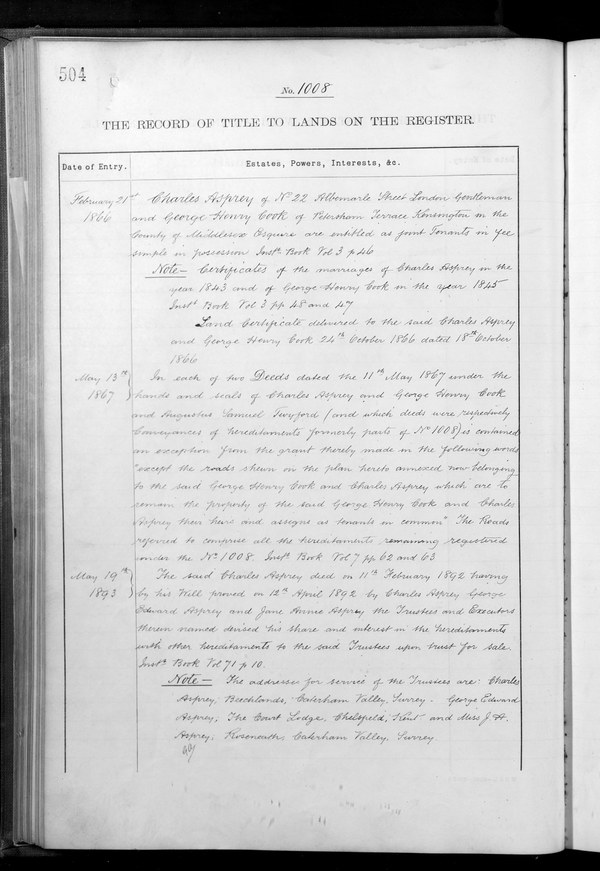 504
No. 1008
THE RECORD OF TITLE TO LANDS ON THE REGISTER.
Date of Entry.
Estates, Powers, Interests, &c.
February 21st
1866
Charles Asprey of No 22 Albemarle Street London Gentleman
and George Henry Cook of Petersham Terrace Kensington in the
County of Middlesex Esquire are entitled as joint Tenants in fee
simple in possession Instt. Book Vol 3 p 46
Note - Certificates of the marriages of Charles Asprey in the
year 1843 and of George Henry Cook in the year 1845
Instt. Book Vol 3 pp 48 and 47
Land Certificate delivered to the said Charles Asprey
and George Henry Cook 24th October 1866 dated 18th October
1866
May 13th
1867
In each of two Deeds dated the 11th May 1867 under the
hands and seals of Charles Asprey and George Henry Cook
and Augustus Samuel Twyford (and which deeds were respectively
Conveyances of hereditaments formerly parts of No 1008) is contained
an exception from the grant thereby made in the following words
"except the roads shewn on the plan hereto annexed now belonging
to the said George Henry Cook and Charles Asprey which are to
remain the property of the said George Henry Cook and Charles
Asprey their heirs and assigns as tenants in common" The Roads
referred to comprise all the hereditaments remaining registered
under the No 1008. Instt. Book Vol 7 pp 62 and 63
May 19th
1893
The said Charles Asprey died on 11th February 1892 having
by his Will proved on 12th April 1892 by Charles Asprey George
Edward Asprey and Jane Annie Asprey the Trustees and Executors
therein named devised his share and interest in the hereditaments
with other hereditaments to the said Trustees upon trust for sale.
Instt. Book Vol 71 p 10.
Note - The addresses for service of the Trustees are: Charles
Asprey; Beechlands, Caterham Valley, Surrey - George Edward
Asprey; The Court Lodge, Chelsfield, Kent and Miss J. A.
Asprey; Roseneath, Caterham Valley, Surrey